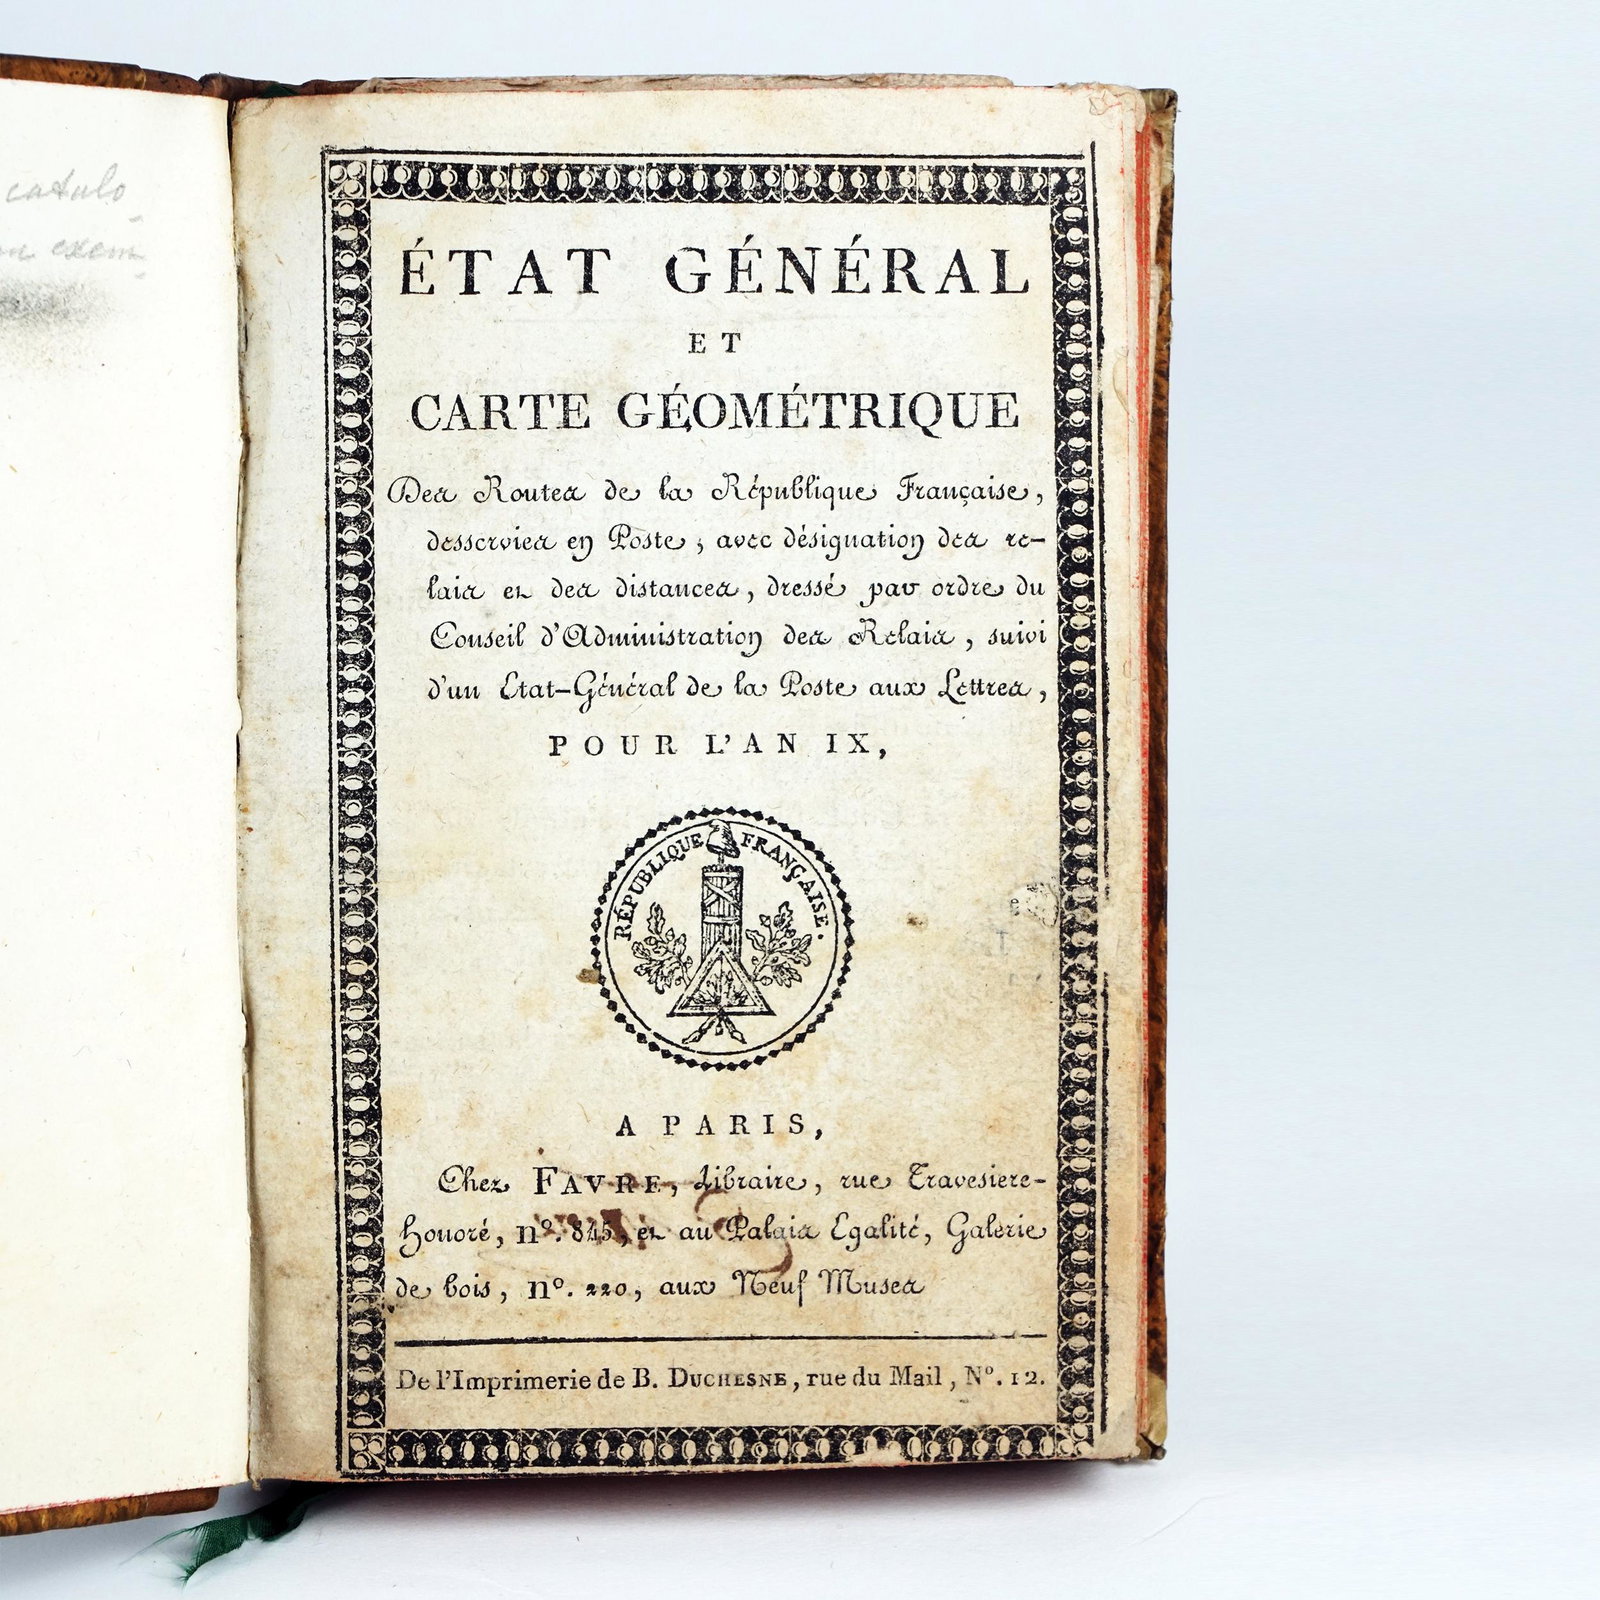 catulo
exem
ÉTAT GÉNÉRAL
ET
CARTE GÉOMÉTRIQUE
Des Routes de la République Française,
desservies en Poste, avec désignation des re-
lais et des distances, dressé par ordre du
Conseil d'Administration des Relais, suivi
d'un Etat-Général de la Poste aux Lettres,
POUR L'AN IX,
RÉPUBLIQUE FRANÇAISE.
A PARIS,
Chez FAVRE, Libraire, rue Travesiere-
Honoré, n°. 845, et au Palais Egalité, Galerie
de bois, n°. 220, aux Neuf Muses
De l'Imprimerie de B. DUCHESNE, rue du Mail, N°. 12.